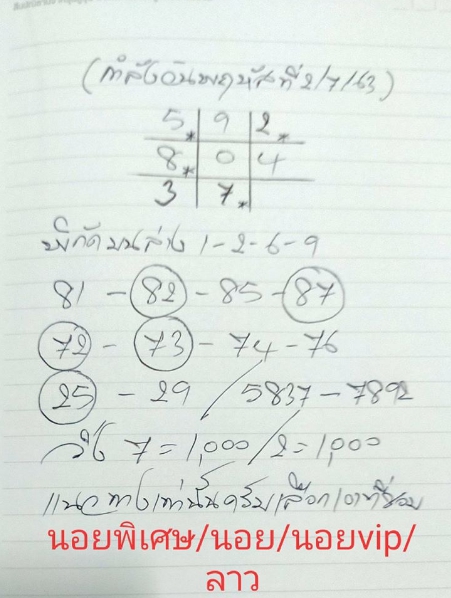 (กำลังวันพฤหัสที่ 2/7/63)
5* 9 2*
8* 0 4
3 7*
พิกัดบนล่าง 1-2-6-9
81 - 82 - 85 - 87
72 - 73 - 74 - 76
25 - 29 / 5837 - 7892
วิ่ง 7 = 1,000 / 2 = 1,000
แนวทางเท่านั้นครับเลือกเอาที่ชอบ
นอยพิเศษ/นอย/นอยvip/
ลาว